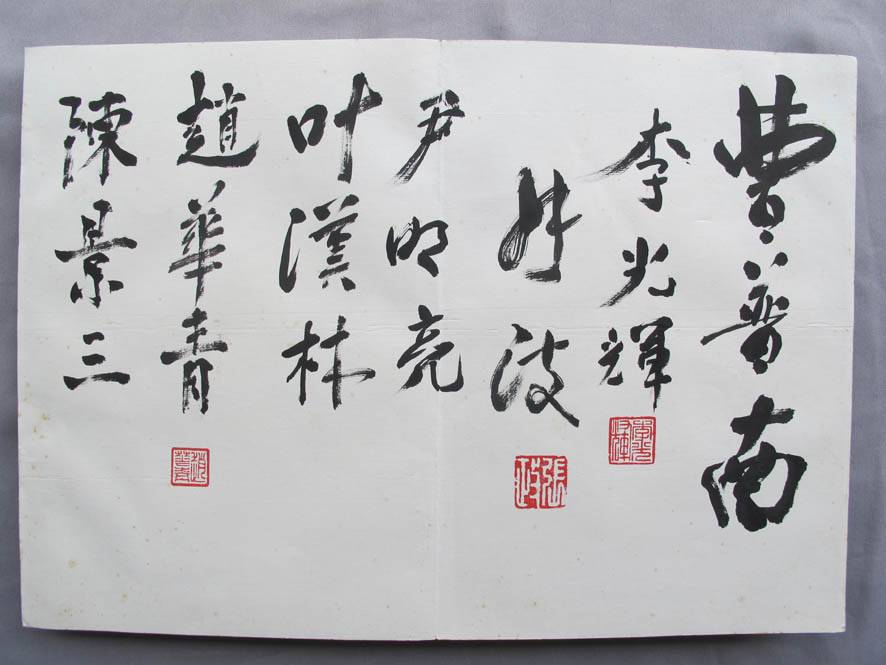 曹普南
李光輝
张波
尹明亮
叶漢林
趙華青
陳景三